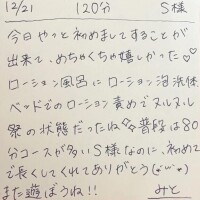 12/21 120分 S様
今日やっと初めましてすることが
出来て、めちゃくちゃ嬉しかった♡
ローション風呂にローション洗体
ベッドでのローション責めでヌルヌル
祭の状態だったね 普段は80
分コースが多いS様なのに、初めて
で長くしてくれてありがとう(๑･‿･๑)
また遊ぼうね!!
みと